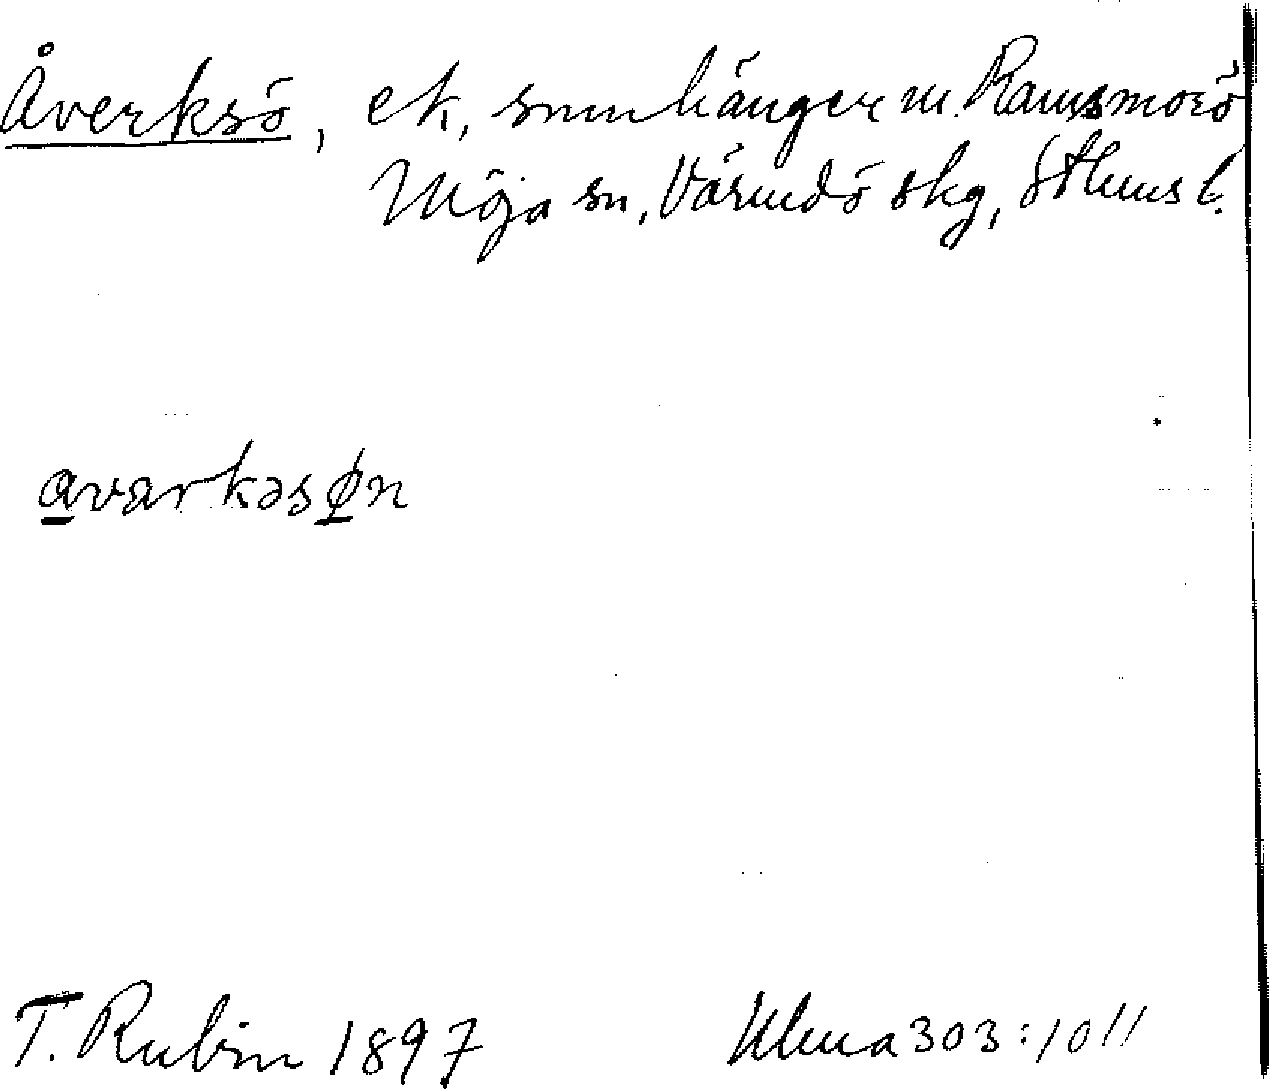 Åverksö, ek, smnhänger m. Ramsmorö
Möja sn, Värmdö skg, Sthms l.
avarkəsøn
T. Rubin 1897 Ulma 303:10 11